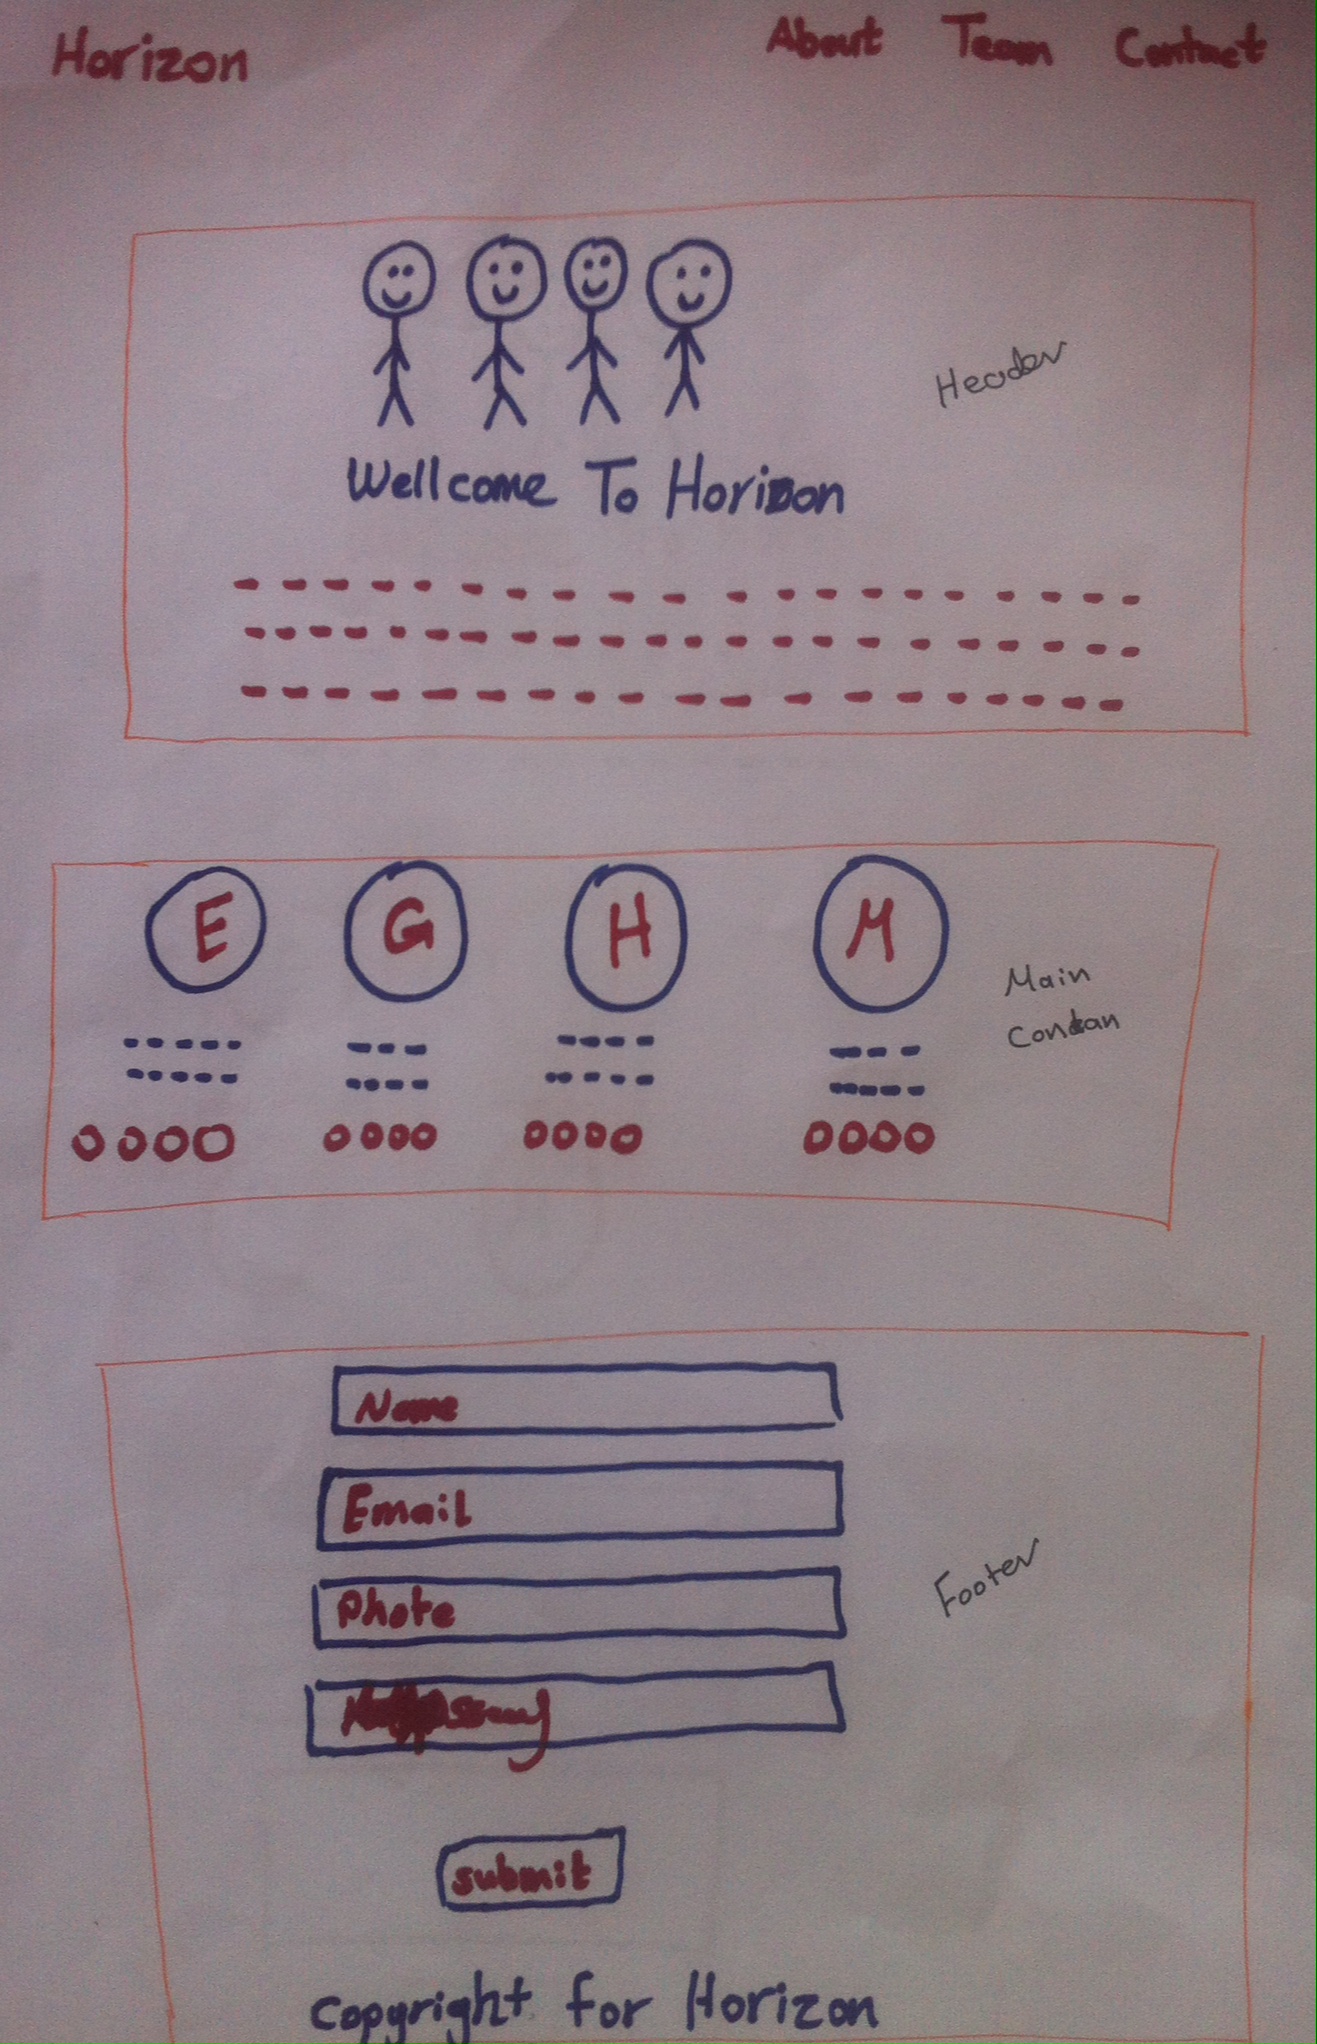 Horizon
About Team Contact
Header
Wellcome To Horizon
E G H M
Main
Contan
Name
Email
Phote
Footer
submit
Copyright for Horizon